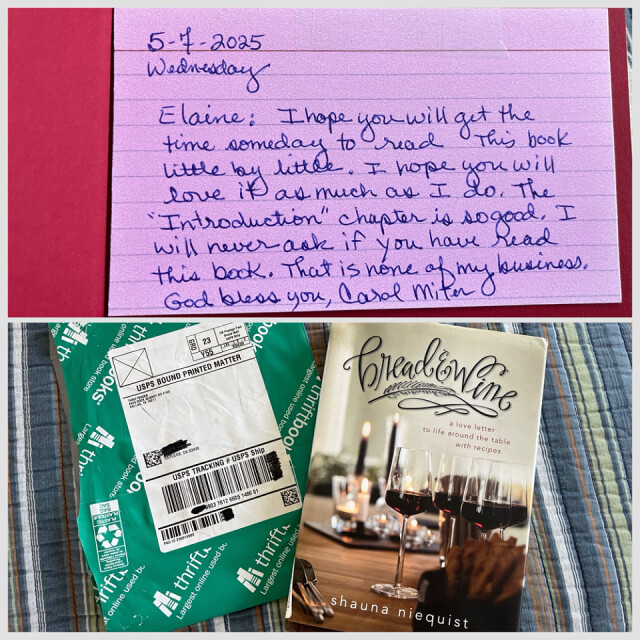 5-7-2025
Wednesday
Elaine: I hope you will get the
time someday to read This book
little by little. I hope you will
love it as much as I do. The
"Introduction" chapter is so good. I
will never ask if you have read
this book. That is none of my business.
God bless you, Carol
thriftbooks
Largest online used book store
USPS BOUND PRINTED MATTER
23
Y55
USPS TRACKING # USPS Ship
thrift
Largest online used
bread & wine
a love letter
to life around the table
with recipes
shauna niequist